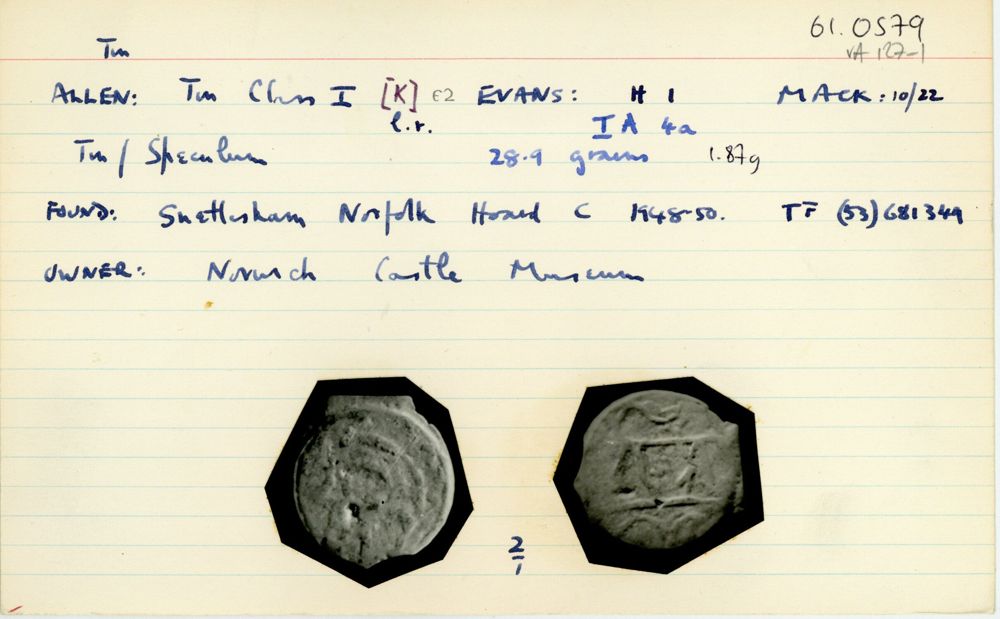 61.0579
Tin VA 127-1
ALLEN: Tin Class I [K] E2 EVANS: H 1 MACK: 10/22
l.r. I A 4a
Tin / Speculum 28.9 grains 1.87g
FOUND: Snettisham Norfolk Hoard C 1948-50. TF (53) 681349
OWNER: Norwich Castle Museum
2/1